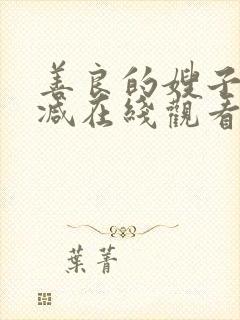 善良的嫂子
减在綫觀看
葉菁